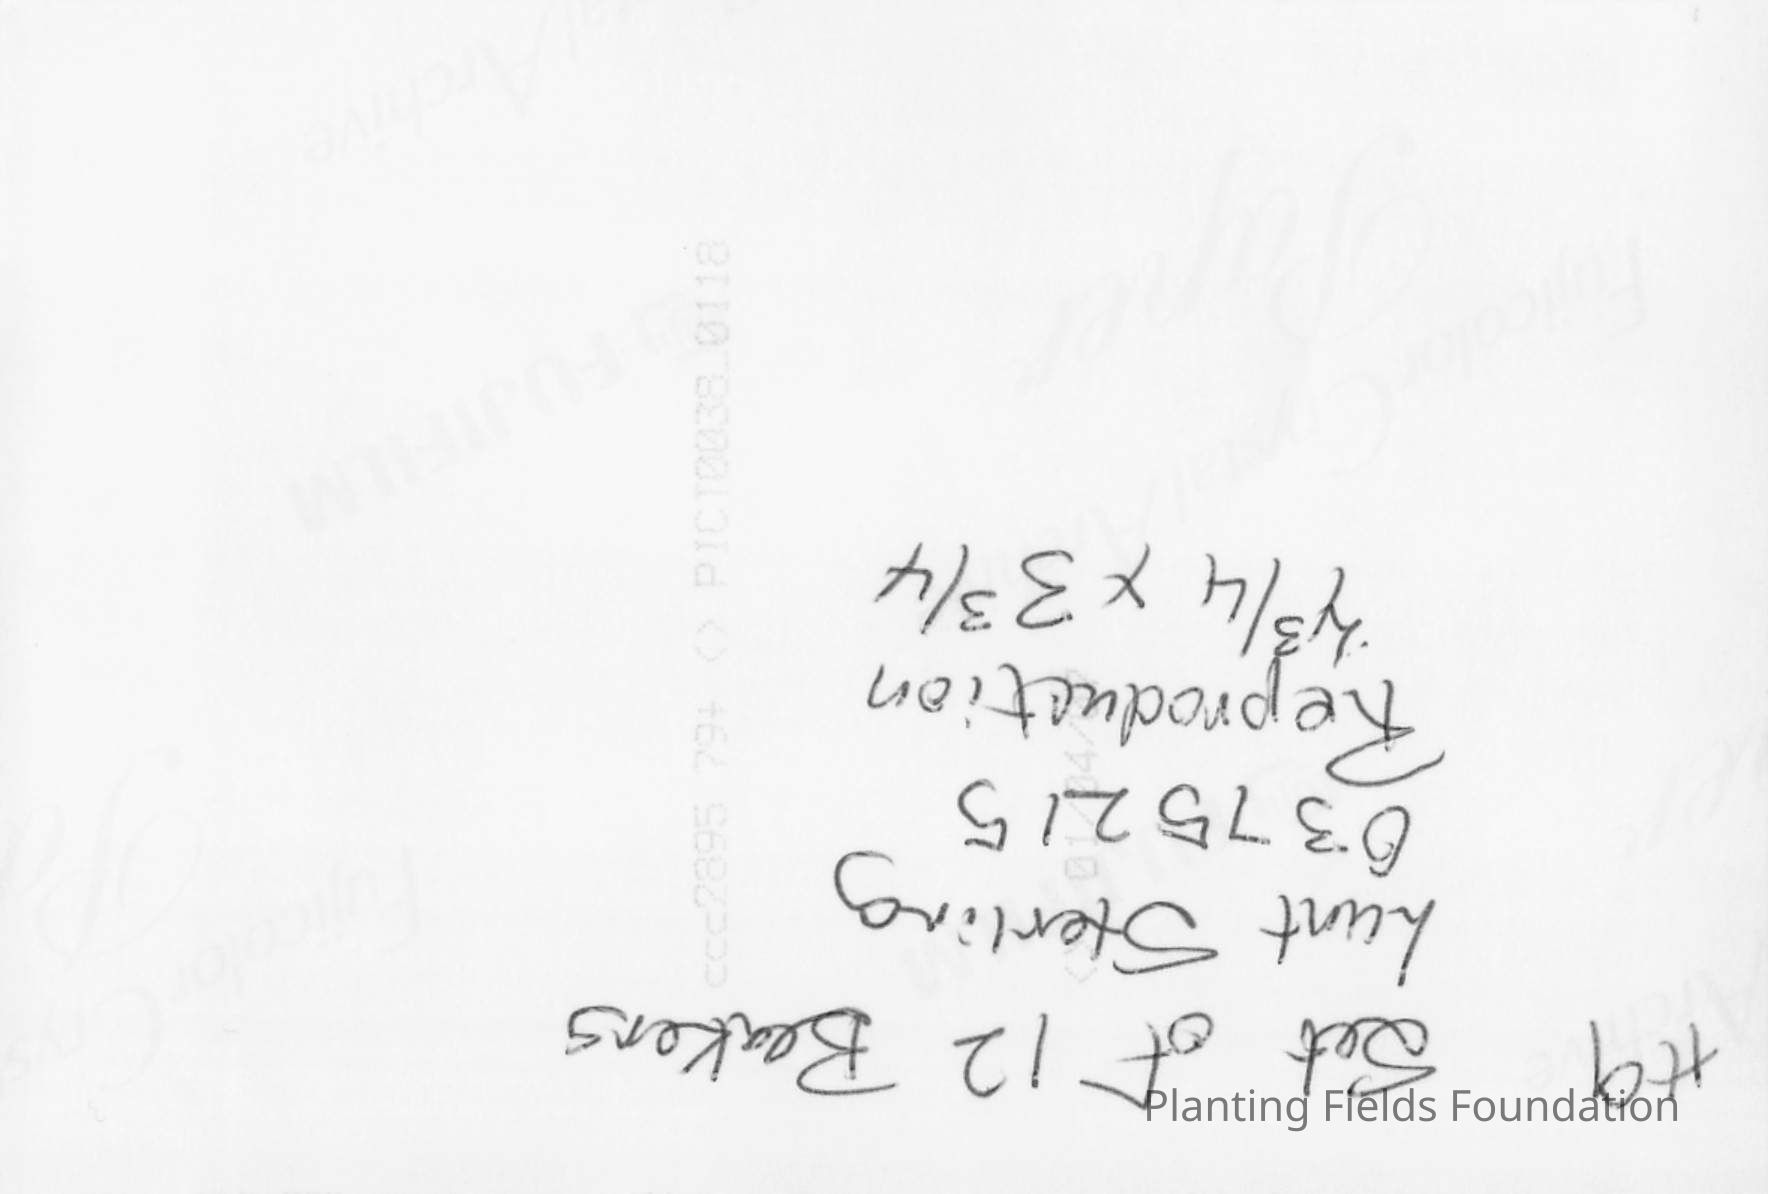 #9 Set of 12 Beakers
Lunt Sterling
0375215
Reproduction
3/4 x 3 3/4
ccc2895 79+ <> PICT0038_0118
FUJIFILM
Fujicolor
Crystal Archive
Paper
Planting Fields Foundation